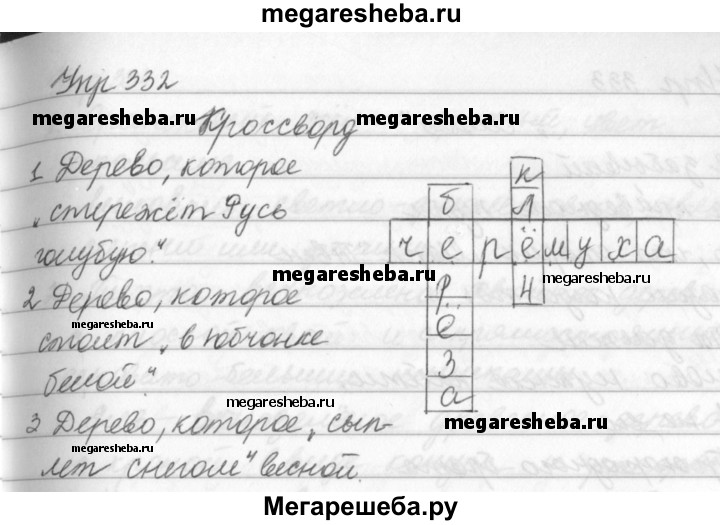 megaresheba.ru
Упр 332
megaresheba.ru
Кроссворд
megaresheba.ru
1 Дерево, которое
„стережёт Русь
голубую."
2 Дерево, которое
стоит „в юбчонке
белой."
3 Дерево, которое „сып-
лет снегом" весной.
к
б л
черёмуха
р н
ё
з
а
megaresheba.ru
megaresheba.ru
megaresheba.ru
megaresheba.ru
megaresheba.ru
Мегарешеба.ру